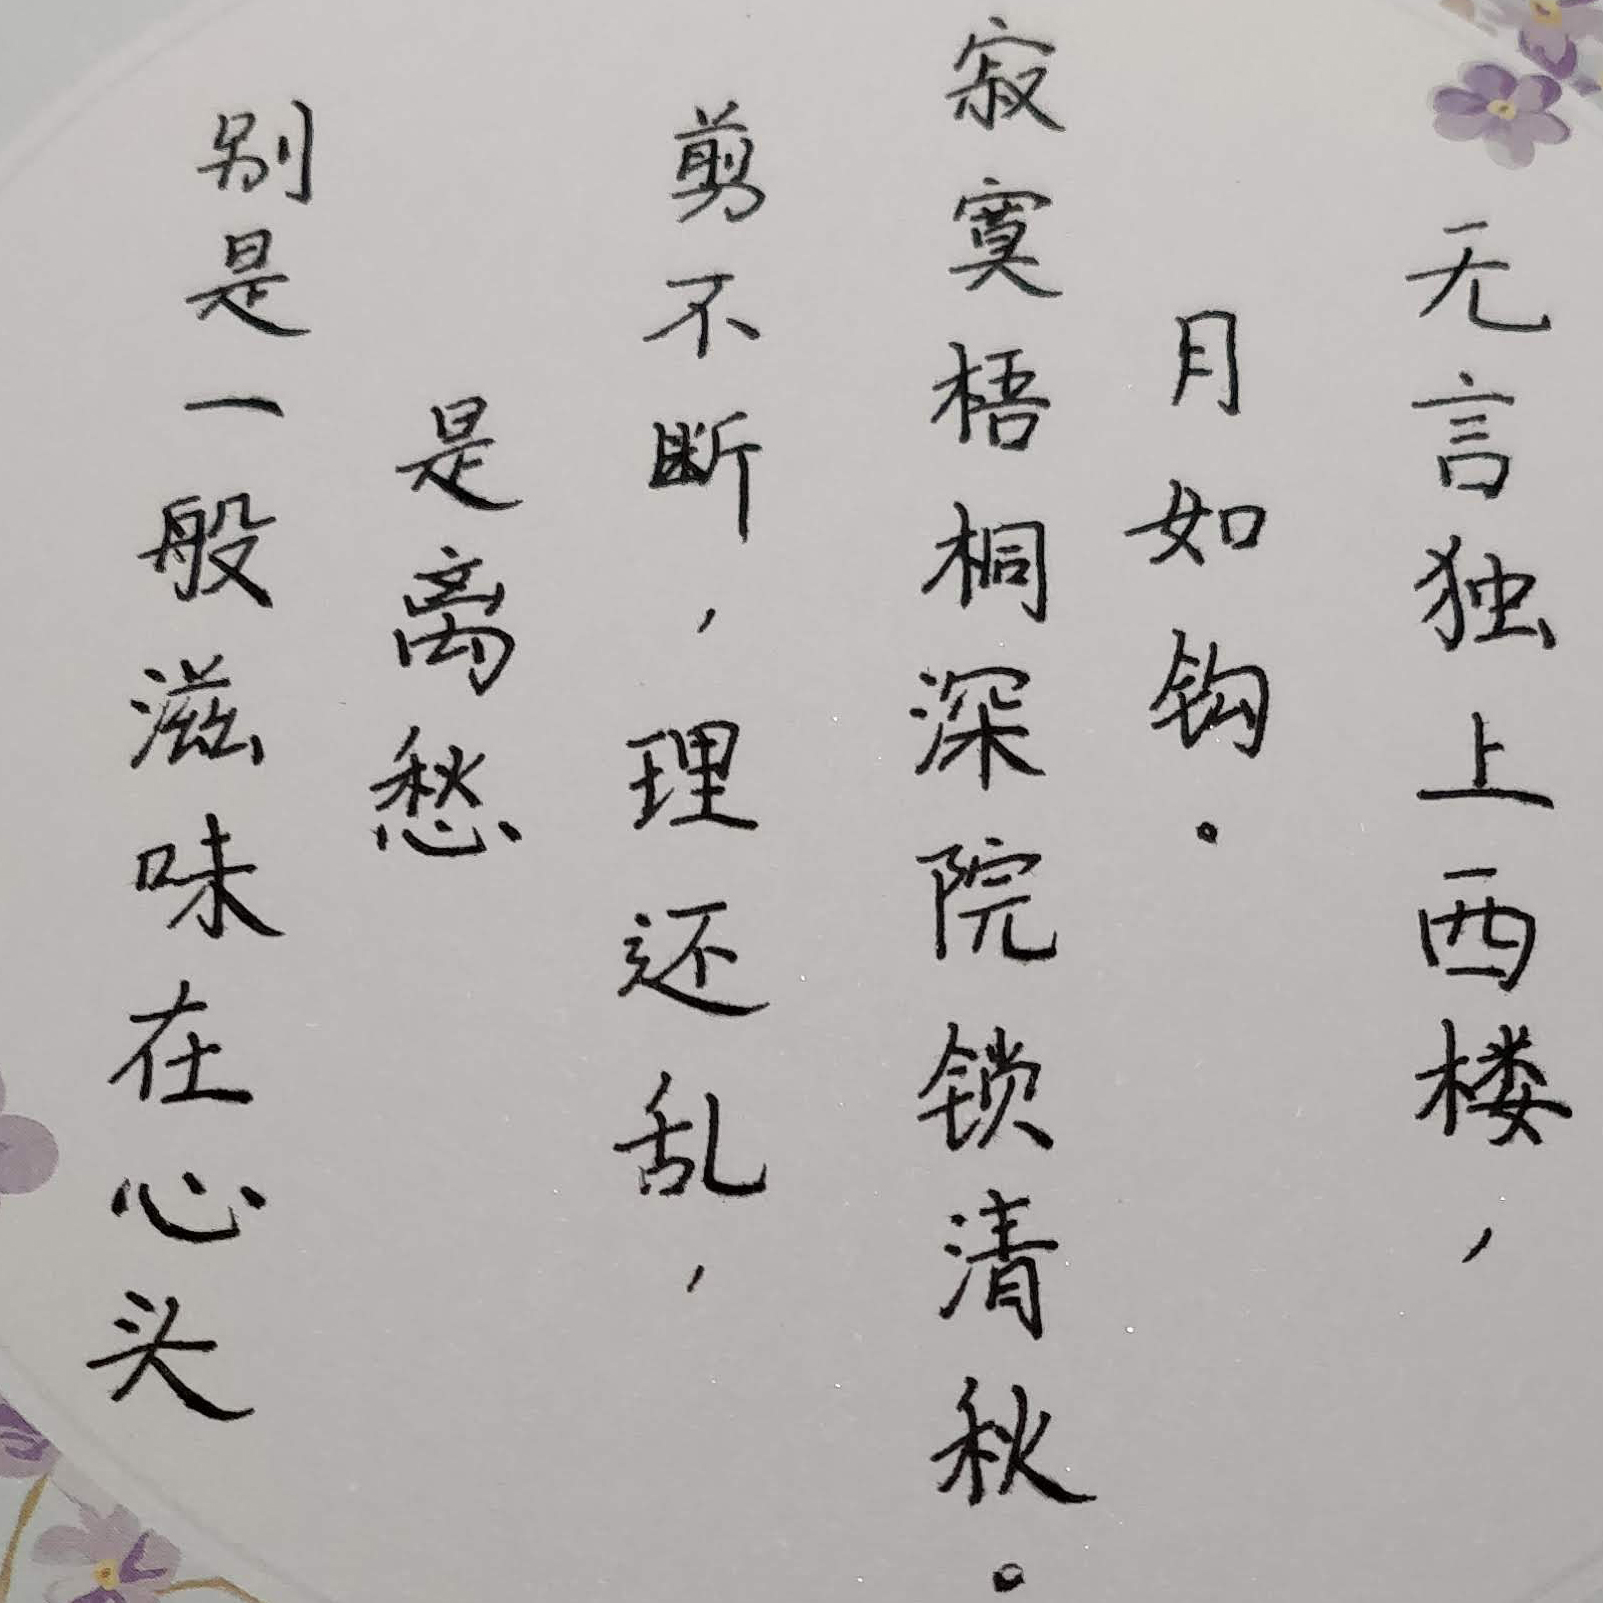 无言独上西楼，
月如钩。
寂寞梧桐深院锁清秋。
剪不断，理还乱，
是离愁
别是一般滋味在心头